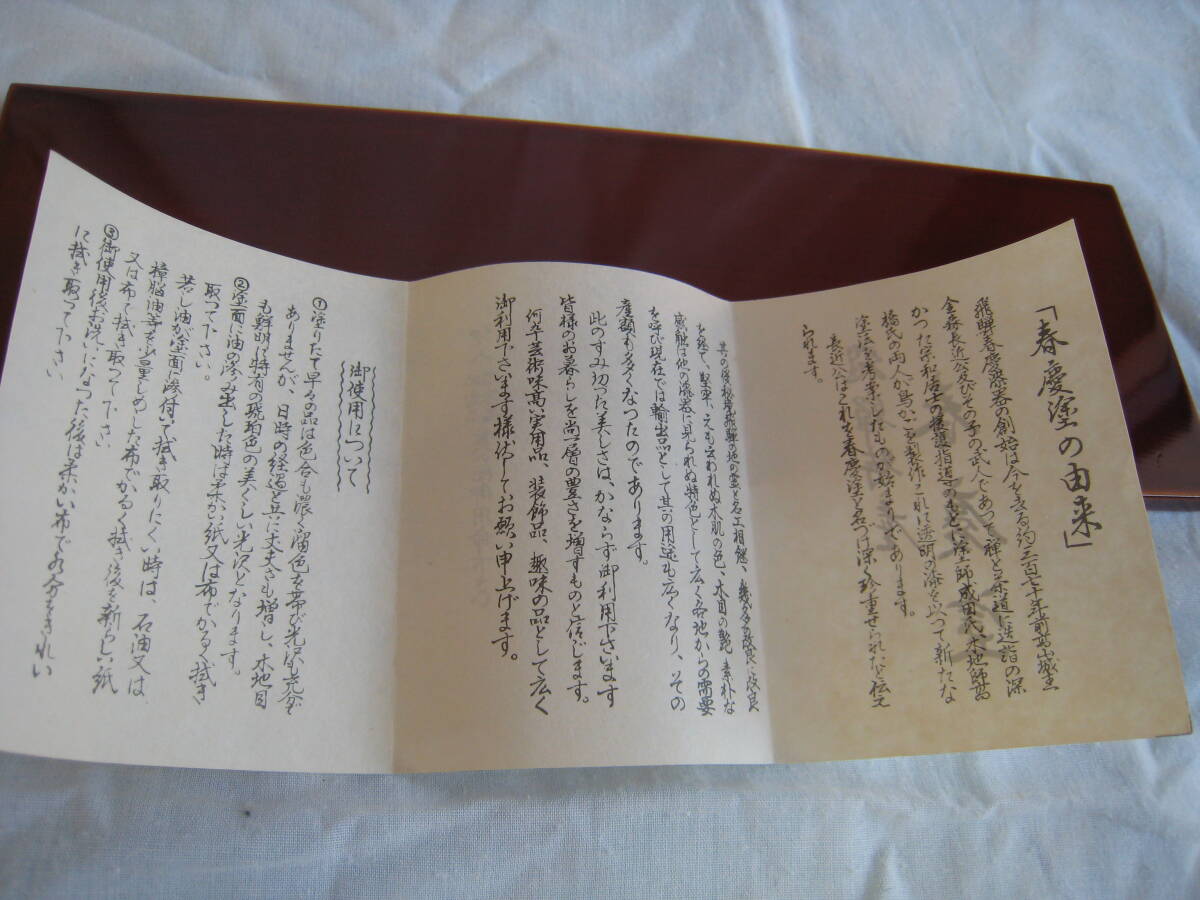 「春慶塗の由来」
飛騨春慶漆器の創始は今をさる約三百七十年前高山城主
金森長近公及びその子の武人であって禅と茶道に造詣の深
かつた宗和居士の援護指導のもとに塗師成田氏、木地師高
橋氏の両人が鳥かごを製作、これに透明の漆を以つて新たな
塗法を考案したものが始まりであります。
長近公はこれを春慶塗と名づけ深く珍重せられたと伝え
られます。
其の後秘境飛騨の地の霊と名工相継ぎ、幾多改良に改良
を経て、堅牢、えも云われぬ木肌の色、木目の艶、素朴な
感触は他の漆器に見られぬ特色として広く各地からの需要
を呼び現在では輸出品として其の用途も広くなり、その
産額も多くなつたのであります。
此のすみ切つた美しさは、かならず御利用下さいます
皆様のお暮らしを尚一層の豊さを増すものと信じます。
何卒芸術味高い実用品、装飾品、趣味の品として広く
御利用下さいます様伏してお願い申上げます。
御使用について
①塗りたて早々の品は色合も濃く溜色を帯び光沢も充分で
ありませんが、日時の経過と共に丈夫さも増し、木地目
も鮮明に特有の琥珀色の美くしい光沢となります。
②塗面に油の滲み出した時は柔かい紙又は布でかるく拭き
取って下さい。
若し油が塗面に滲付いて拭き取りにくい時は、石油又は
樟脳油等を少量しめした布でかるく拭き後を新らしい紙
又は布で拭き取って下さい。
③御使用後お洗いになつた後は柔かい布で水分をきれい
に拭き取って下さい